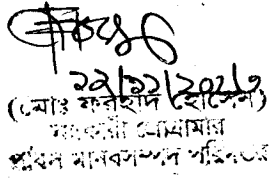 ২২/১১/২০১৭
(মোঃ ফরহাদ হোসেন)
সহকারী প্রোগ্রামার
মানবসম্পদ পরিদপ্তর